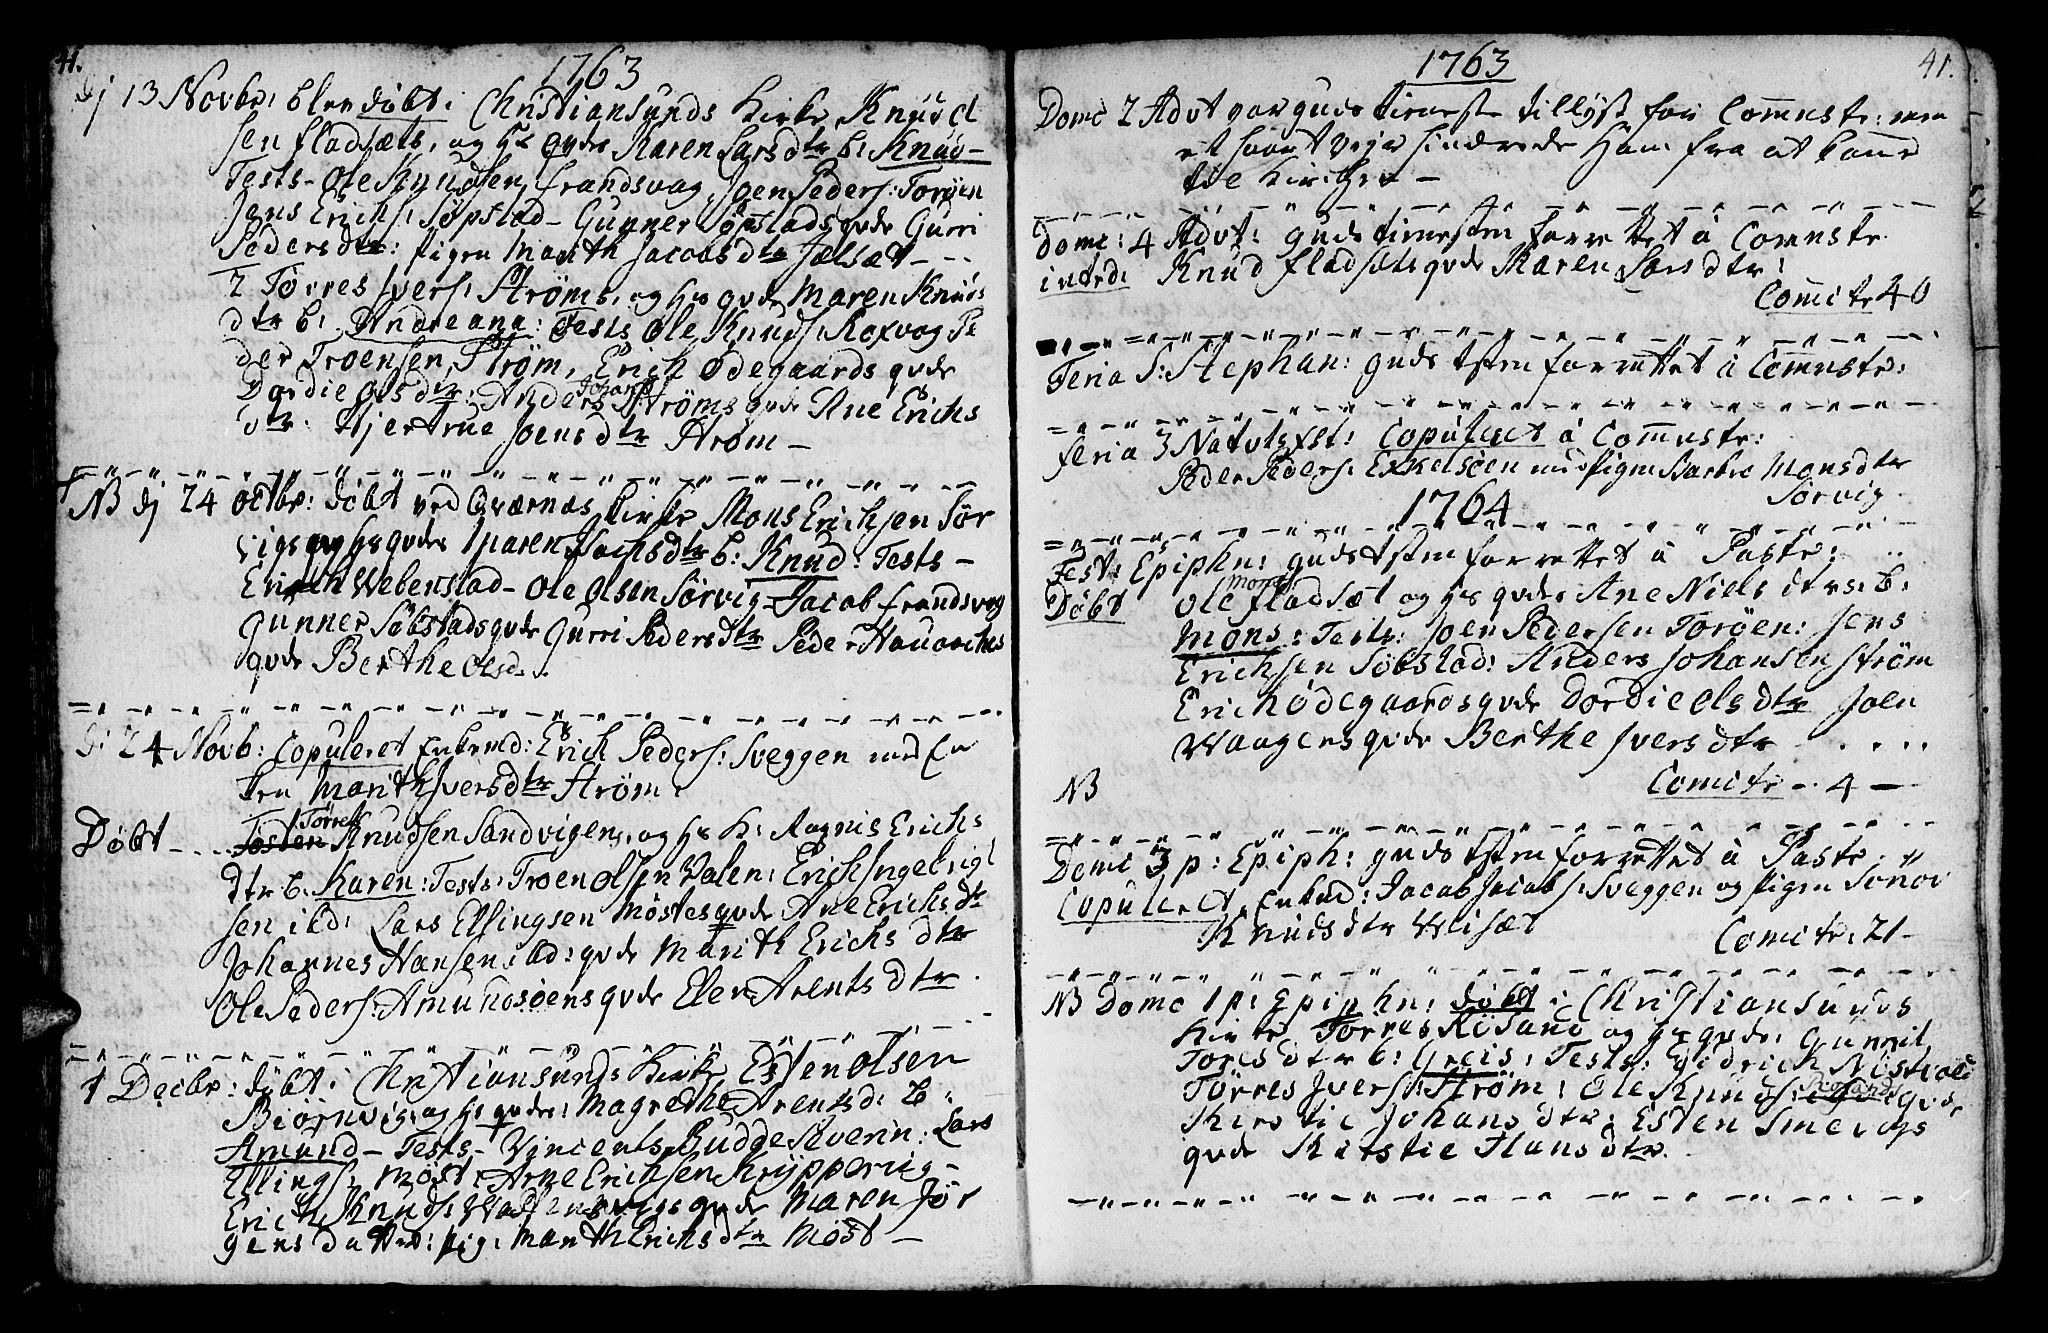 41.
1763
dj 13 Novbr: blev døbt i Christiansunds Kirke Knud O
sen fladsæts, og hs qvde Karen Larsdtr b: Knud-
Tests- Ole Knudsen frandsvag, Joen Peders: Torøen
Jens Erichs: Søpstad- Gunner Søpstads qvde Gurri
Pedersdtr: pigen Marith Jacobsdtr
2 Tørres Ivers: Strøms, og hs qvde Maren Knuds
dtr b: Andreana: Tests Ole Knuds: Roxvog Pe
der Troensen, Strøm, Erich Ødegaards qvde
Dordie Olsdtr: Anders Johans: Strøms qvde Ane Erichs
dtr. Hjertrue Joensdtr Strøm-
NB dj 24 octbr: døbt ved Qværnæs kirke Mons Erichsen Sør
vigs og hs qvde Maren dtr b: Knud: Tests-
Erich Webenstad- Ole Olsen Sørvig- Jacob frandsvog
Gunner Søbstads qvde Gurri Pedersdtr Peder
qvde Berthe Olsd.
dj 24 Novb: Copuleret Enkemd: Erich Peders: Sveggen med En
ken Marith Iversdtr Strøm.
Døbt - . . Tosten Tørres Knudsen Sandvigens, og hs k: Ragnis Erichs
dtr b. Karen: Tests: Troen Olsen Valen: Erich Ingebrigt
sen ibd: Lars Ellingsen Møstes qvde Ane Erichsdtr
Johannes Hansen ibd: qvde Marith Erichsdtr
Ole Peders: Amundsøens qvde Elen Arentsdtr.
1 Decbr: døbt i Christiansunds Kirke Esten Olsen
Biørnvig, og hs qvde: Magrethe Arentsd: b:
Amund- Tests- Vincents Budde Severin: Lars
Ellings: Møst. Arne Erichsen Kryppervig-
Erich Knuds: qvde Maren Jør
gens datter: pig: Marith Erichsdtr Møst-
1763
41.
Domc 2 Advt var guds tieneste tillyst for Comnstr: men
et haart vejr hindrede Ham fra at kome
til Kirken-
Domc: 4 Advt: guds tienesten forrettet â Comnstr
introd: Knud fladsæts qvde Maren Larsdtr:
Comitr 40
Feria S: Stephan: guds tsten forrettet â Comnstr:
feria 3 Natvts fst: Copuleret â Comnstr:
Peder Peders: Exkelsøen med pigen Barbro Monsdtr
Sørvig.
1764
Fest: Epiphn: guds tsten forrettet â Pastr:
Døbt Ole Mons: fladsæt og hs qvde: Ane Niels dtrs: b:
Mons: Tests: Joen Pedersen Torøen: Jens
Erichsen Søbstad: Anders Johansen Strøm
Erich Ødegaards qvde Dordie Olsdtr Joen
Waagens qvde Berthe Iversdtr . . . .
NB Comitr - 4 -
Domc 3 p: Epiph: guds tsten forrettet â Pastr:
Copuleret, Enkmd: Jacob Jacobs: Sveggen og pigen Sønøv
Knudsdtr Comitr: 21-
NB Domc 1 p: Epiphn: døbt i Christiansunds
kirke Tørres Rosand og hs qvde: Gunnil
Toresdtr b: Greis: Tests: Didrich
Tørres Ivers: Strøm: Ole Knuds: Rosands qvde
Kirstie Johansdtr: Esten
qvde Kirstie Hansdtr.